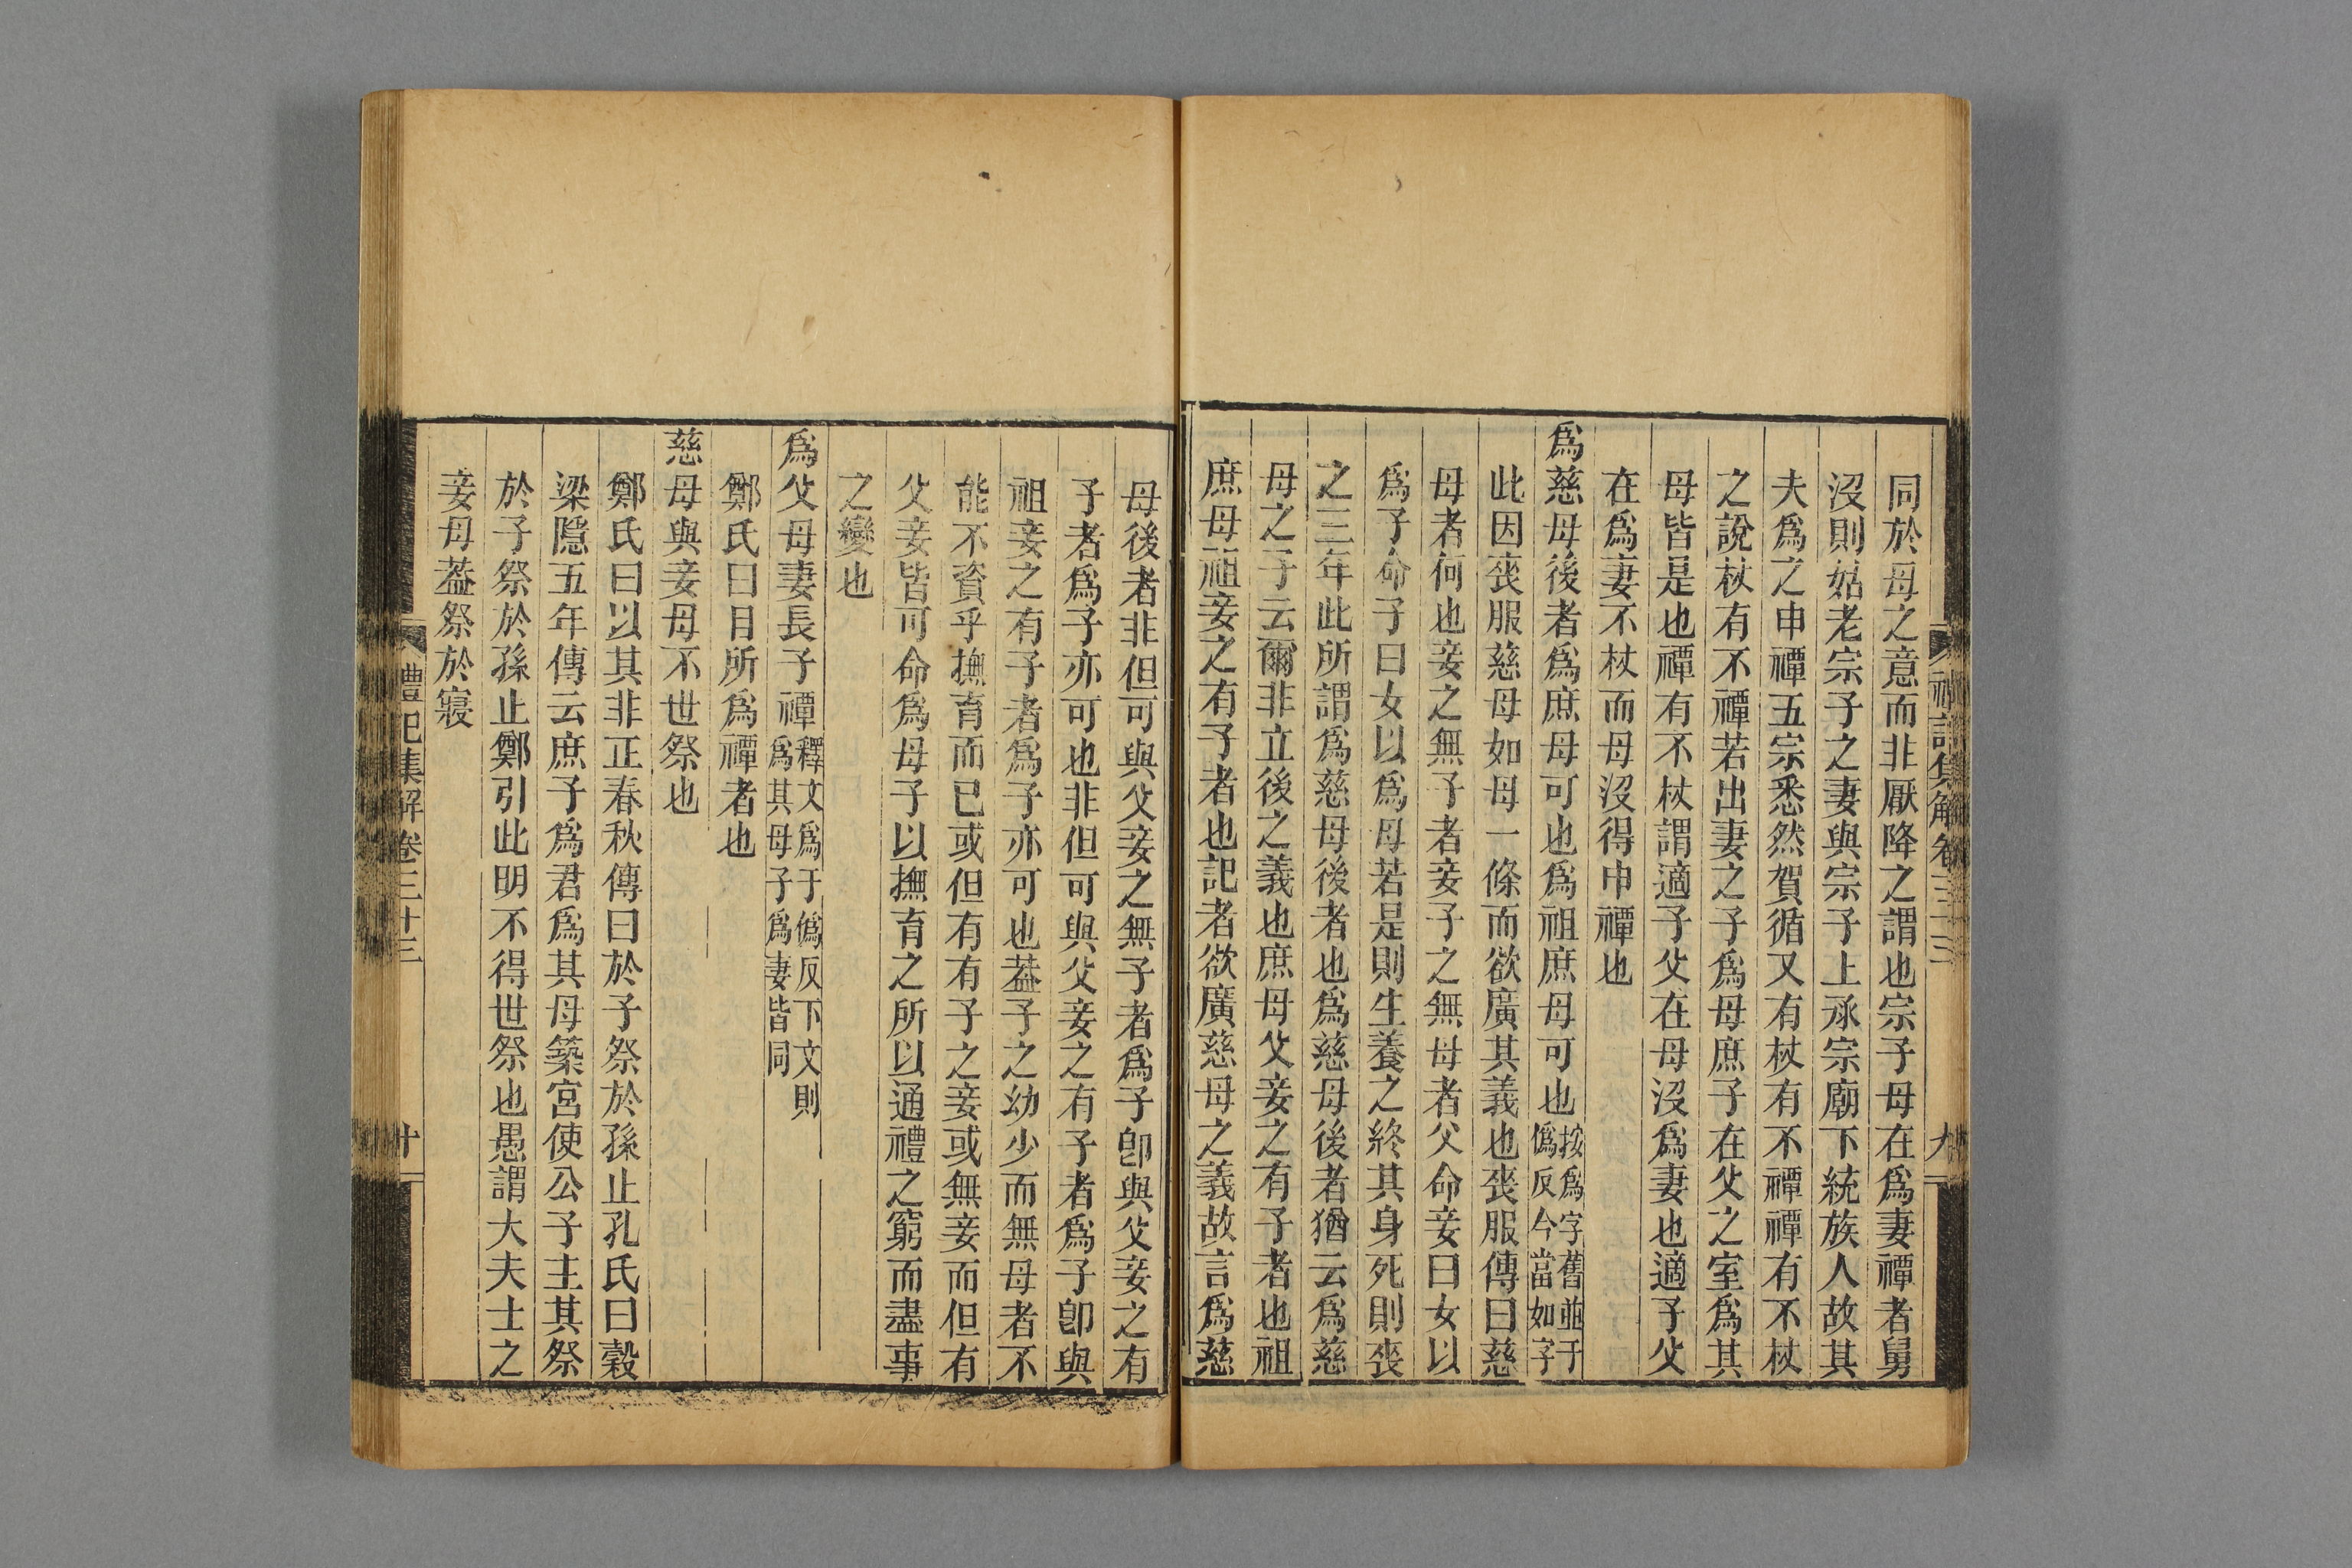 同於母之意而非厭降之謂也宗子母在爲妻禫者舅
沒則姑老宗子之妻與宗子上承宗廟下統族人故其
夫爲之申禫五宗悉然賀循又有杖有不禫禫有不杖
之說杖有不禫若出妻之子爲母庶子在父之室爲其
母皆是也禫有不杖謂適子父在母沒爲妻也適子父
在爲妻不杖而母沒得申禫也
爲慈母後者爲庶母可也爲祖庶母可也按爲字舊並于
僞反今當如字
此因喪服慈母如母一條而欲廣其義也喪服傳曰慈
母者何也妾之無子者妾子之無母者父命妾曰女以
爲子命子曰女以爲母若是則生養之終其身死則喪
之三年此所謂爲慈母後者也爲慈母後者猶云爲慈
母之子云爾非立後之義也庶母父妾之有子者也祖
庶母祖妾之有子者也記者欲廣慈母之義故言爲慈
禮記集解卷三十三 九
母後者非但可與父妾之無子者爲子卽與父妾之有
子者爲子亦可也非但可與父妾之有子者爲子卽與
祖妾之有子者爲子亦可也葢子之幼少而無母者不
能不資乎撫育而已或但有有子之妾或無妾而但有
父妾皆可命爲母子以撫育之所以通禮之窮而盡事
之變也
爲父母妻長子禫釋文爲于僞反下文則
爲其母子爲妻皆同
鄭氏曰目所爲禫者也
慈母與妾母不世祭也
鄭氏曰以其非正春秋傳曰於子祭於孫止孔氏曰穀
梁隱五年傳云庶子爲君爲其母築宮使公子主其祭
於子祭於孫止鄭引此明不得世祭也愚謂大夫士之
妾母葢祭於寢
禮記集解卷三十三 十